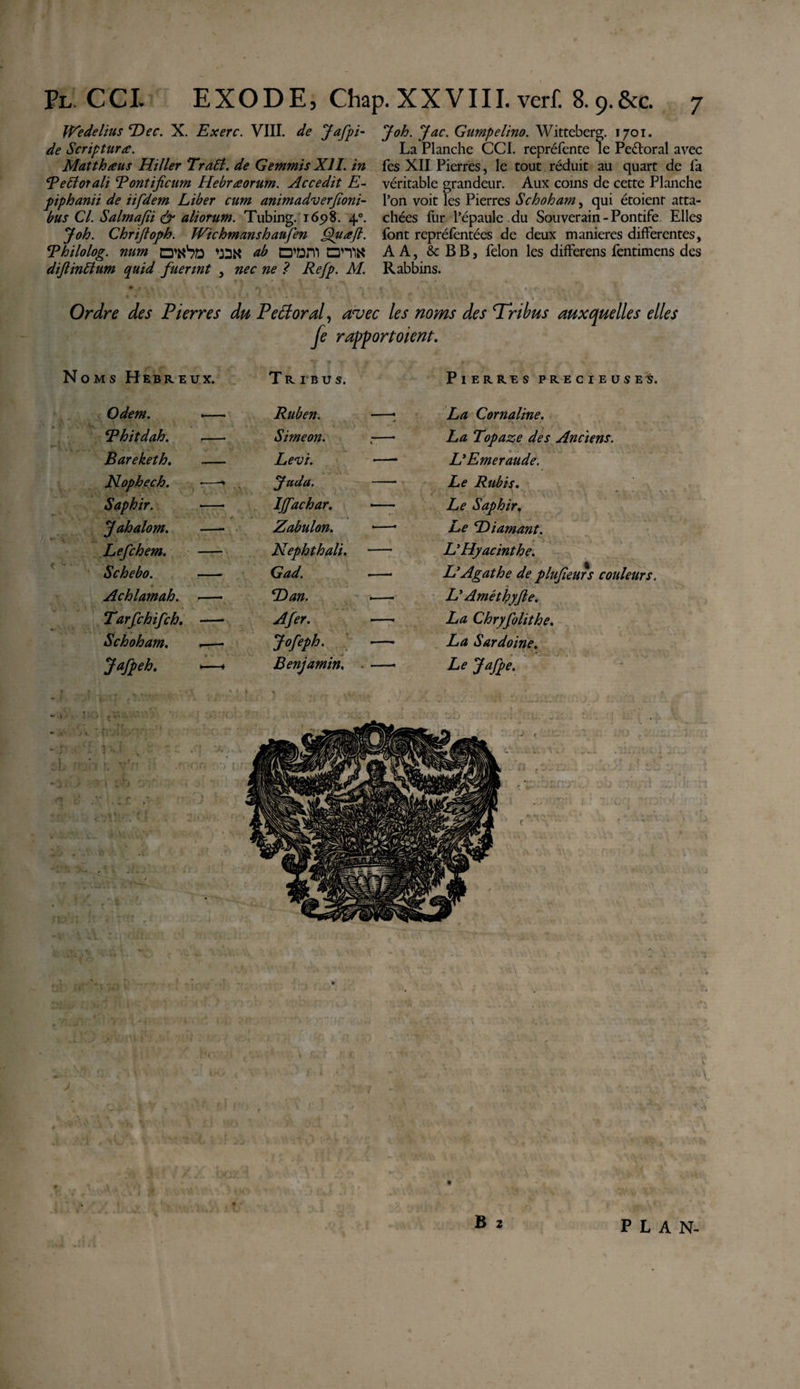 PL. CCI. EXODE, Chap. XXVIII. verf. 8. 9. &c. 7
Wedelius Dec. X. Exerc. VIII. de Jaſpi-
de Scripturæ.
Matthæus Hiller Tract. de Gemmis XII. in
Pectorali Pontificum Hebræorum. Accedit E-
piphanii de iiſdem Liber cum animadverſioni-
bus Cl. Salmaſii & aliorum. Tubing. 1698. 4°.
Joh. Chriſtoph. Wichmanshauſen Quæſt.
Philolog. num אבני מלאים ab אורים ותמים
diſtinctum quid fuerint , nec ne ? Reſp. M.
Joh. Jac. Gumpelino. Witteberg. 1701.
La Planche CCI. repréſente le Pectoral avec
ſes XII Pierres, le tout réduit au quart de ſa
véritable grandeur. Aux coins de cette Planche
l'on voit les Pierres Schoham, qui étoient atta-
chées ſur l'épaule du Souverain-Pontife. Elles
ſont repréſentées de deux manieres differentes,
A A, & B B, ſelon les differens ſentimens des
Rabbins.
Ordre des Pierres du Pectoral, avec les noms des Tribus auxquelles elles
ſe rapportoient.
NOMS HEBREUX. TRIBUS. PIERRES PRECIEUSES.
Odem. — Ruben. — La Cornaline.
Phitdah. — Simeon. — La Topaze des Anciens.
Bareketh. — Levi. — L'Emeraude.
Nophech. — Juda. — Le Rubis.
Saphir. — Iſſachar. — Le Saphir.
Jahalom. — Zabulon. — Le Diamant.
Leſchem. — Nephthali. — L'Hyacinthe.
Schebo. — Gad. — L'Agathe de pluſieurs couleurs.
Achlamah. — Dan. — L'Améthyſte.
Tarſchiſch. — Aſer. — La Chryſolithe.
Schoham. — Joſeph. — La Sardoine.
Jaſpeh. — Benjamin. — Le Jaſpe.
B 2 PLAN-